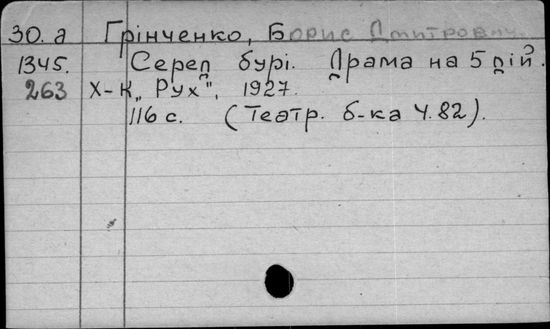 30. а Грінченко, Борис Дмитрович.
1345. Серед бурі. Драма на 5 дій.
263 Х-К „Рух", 1927.
116 с. (Театр. б-ка Ч. 82).